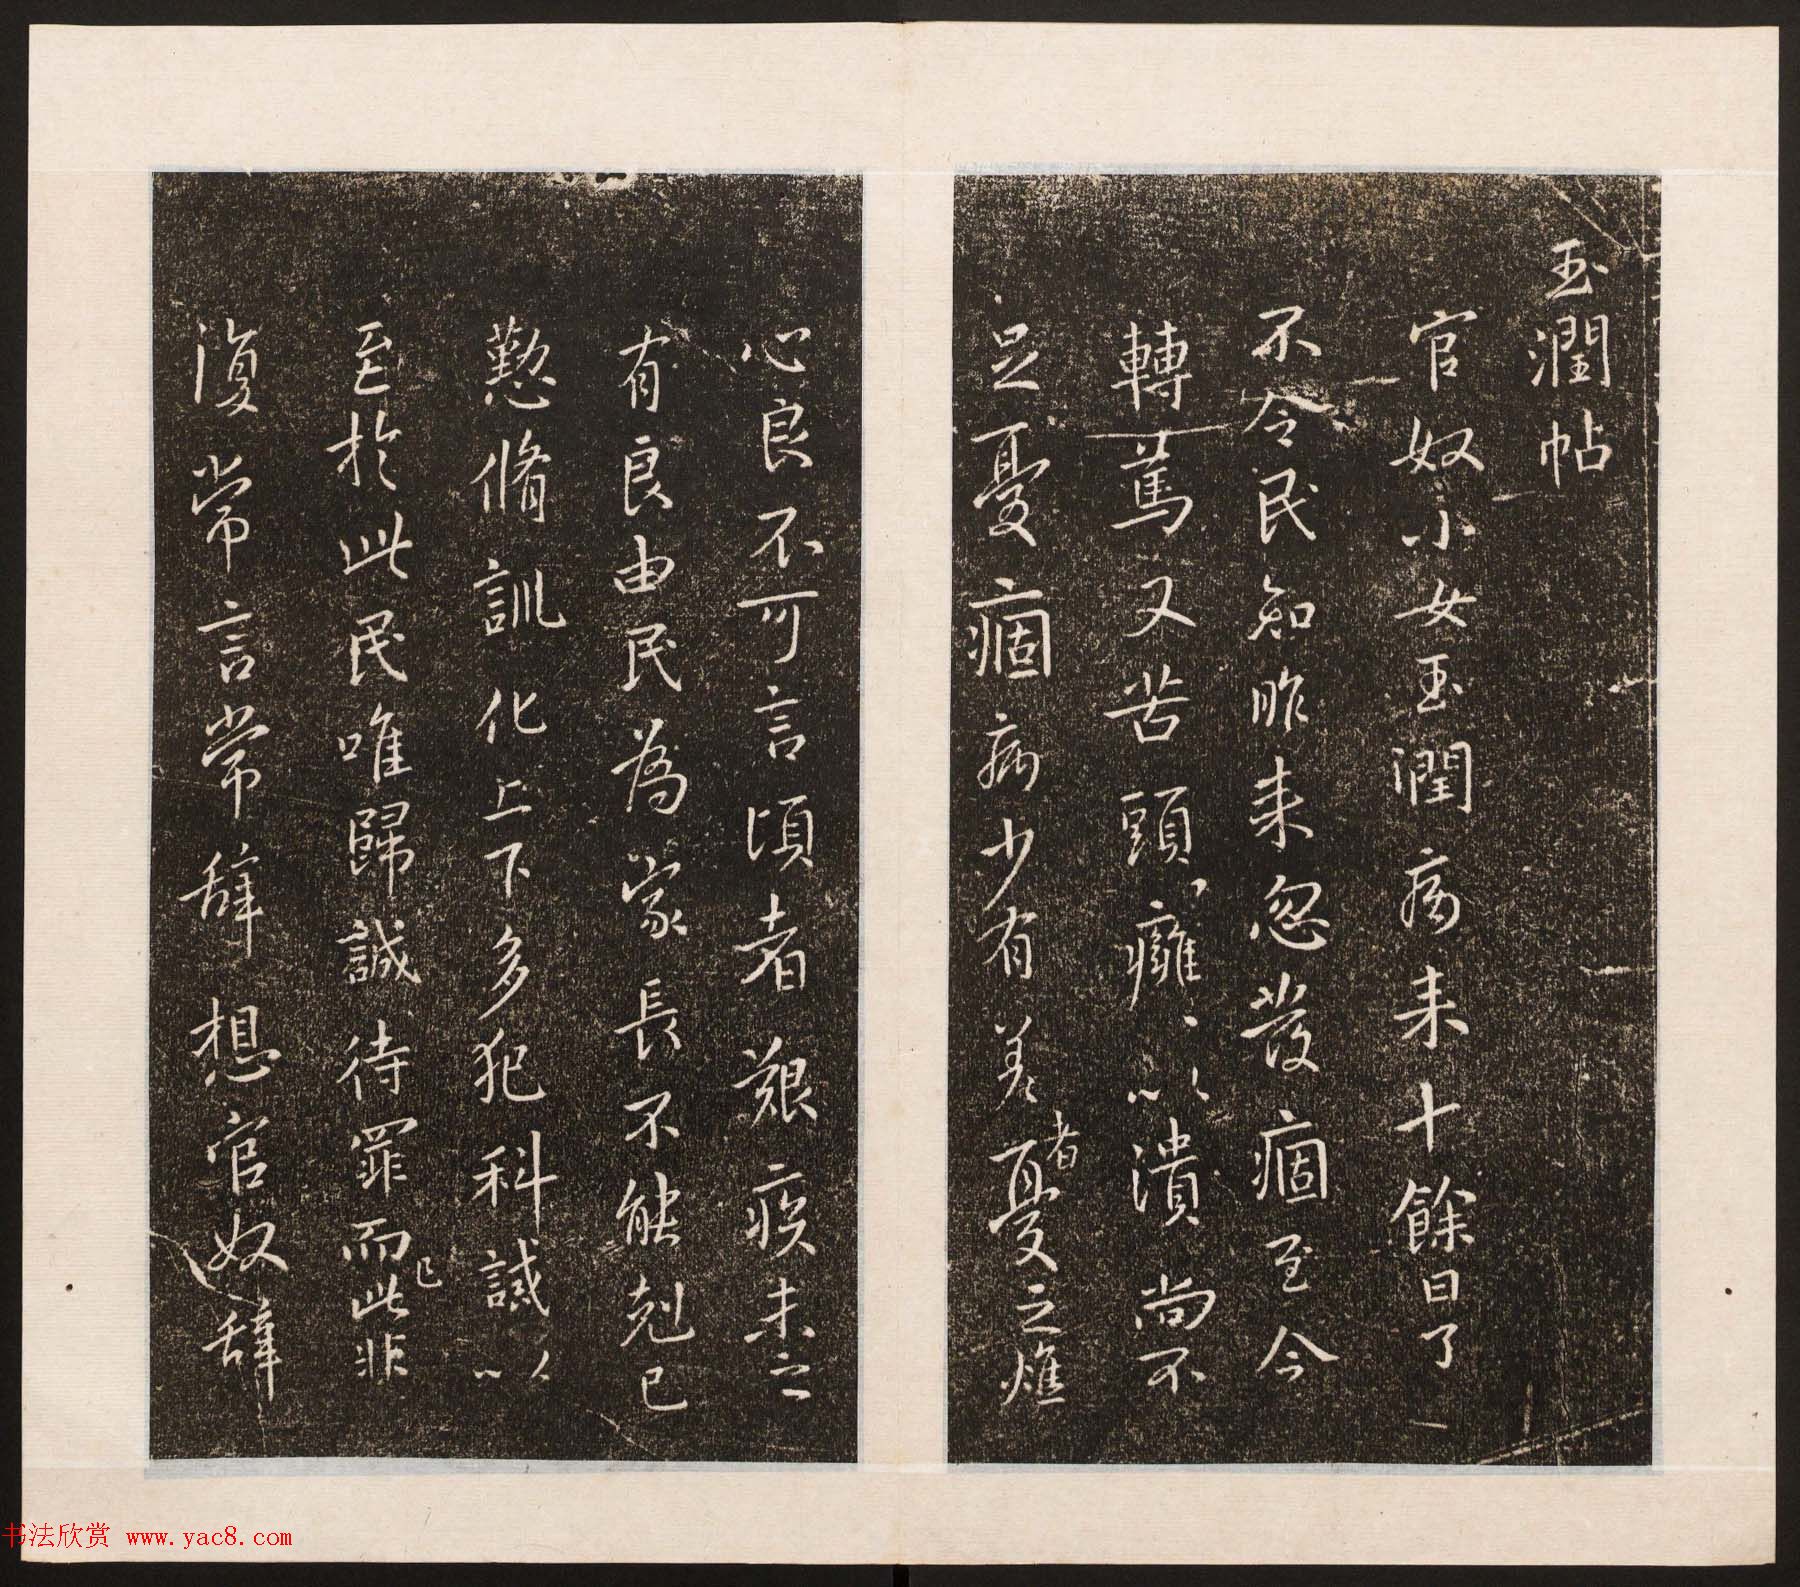 玉潤帖
官奴小女玉潤病来十餘日了
不令民知昨来忽發痼至今
轉篤又苦頭癰癰以潰尚不
足憂痼病少有差者憂之燋
心良不可言頃者艱疾未之
有良由民為家長不能剋己
懃脩訓化上下多犯科誡以
至於此民唯歸誠待罪而已此非
復常言常辞想官奴辞
书法欣赏 www.yac8.com